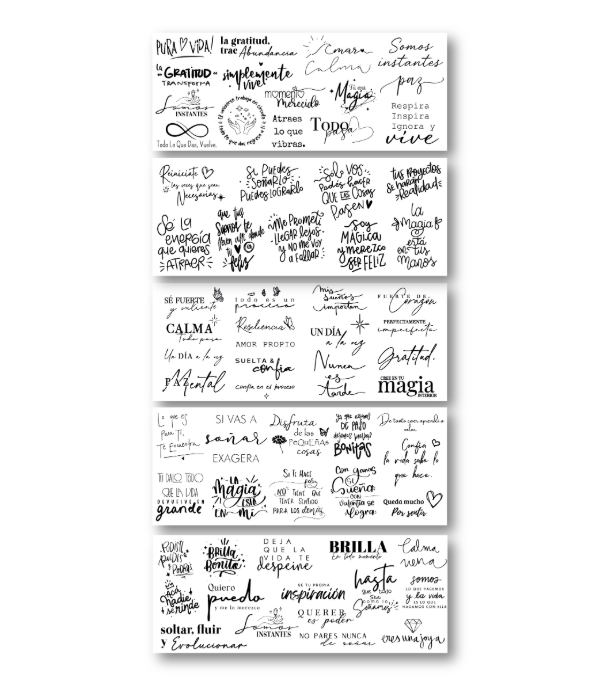 PURA VIDA!
la gratitud,
trae Abundancia
Amara
Calma
Somos
instantes
paz
la
GRATITUD
TRANSFORMA
simplemente
vive
Somos
INSTANTES
Todo Lo Que Das, Vuelve.
El universo trabaja en círculo
todo lo que das, regresa a ti
momento
Merecido
Atraes
lo que
vibras.
Tú eres
Magia
Todo
pasa
Respira
Inspira
Ignora y
vive
Reiniciate
las veces que sean
Necesarias
Si PUEDES
SOÑARLO
PUEDES LOGRARLO
SOLO VOS
PODÉS HACER
QUE LAS COSAS
PASEN
tus PROYECTOS
SE HARÁN
REALIDAD
Sé LA
ENERGÍA
que quieres
ATRAER
que tus
SUEÑOS te
lleven allí donde
tu
feliz
Me PROMETÍ
LLEGAR lejos
y NO ME VOY
A FALLAR
SOY
MÁGICA
y MEREZCO
SER FELIZ
la
MAGIA
está
en tus
MANOS
SÉ FUERTE
y valiente
CALMA
Todo pasa
Un DÍA a la vez
PAZ Mental
todo es un
proceso
Resiliencia
AMOR PROPTO
SUELTA &
confía
confía en el proceso
mis
sueños
importan
UN DÍA
a la vez
Nunca
es
tarde
FUERTE DE
Corazón
PERFECTAMENTE
imperfecta
Gratitud.
CREE EN TU
magia
INTERIOR
Lo que es
Para Ti,
Te Encuentra
SI VAS A
soñar
EXAGERA
Disfruta
de las
PEQUEÑAS
cosas
Ya que estamos
DE PASO
dejemos huellas
BONITAS
De tanto caer aprendí a
volar
Confía
la vida sabe lo
que hace.
TU DALO TODO
QUE LA VIDA
DEVUELVE EN
grande
LA
MAGIA
ESTÁ
EN MÍ
Si TE HACE
feliz
NO TIENE QUE
TENER SENTIDO
PARA LOS demás
Con ganas
SE
SUEÑA
CON
valentía se
Logra
Queda mucho
Por sentir
PODÉS
PUEDES
PODRÁS
BRILLA
BONITA
DEJA
QUE LA
VIDA TE
despeine
BRILLA
en todo momento
Calma
nena
Acá
nadie
se rinde
Quiero
puedo
y me lo merezco
SE TU PROPIA
inspiración
hasta
que todo
Sea
como lo
Soñamos
somos
LO QUE HACEMOS
y la vida
ES LO QUE
HAGAMOS CON ELLA
soltar, fluir
y Evolucionar
Somos
INSTANTES
QUERER
es poder
NO PARES NUNCA
de soñar
eres una joya